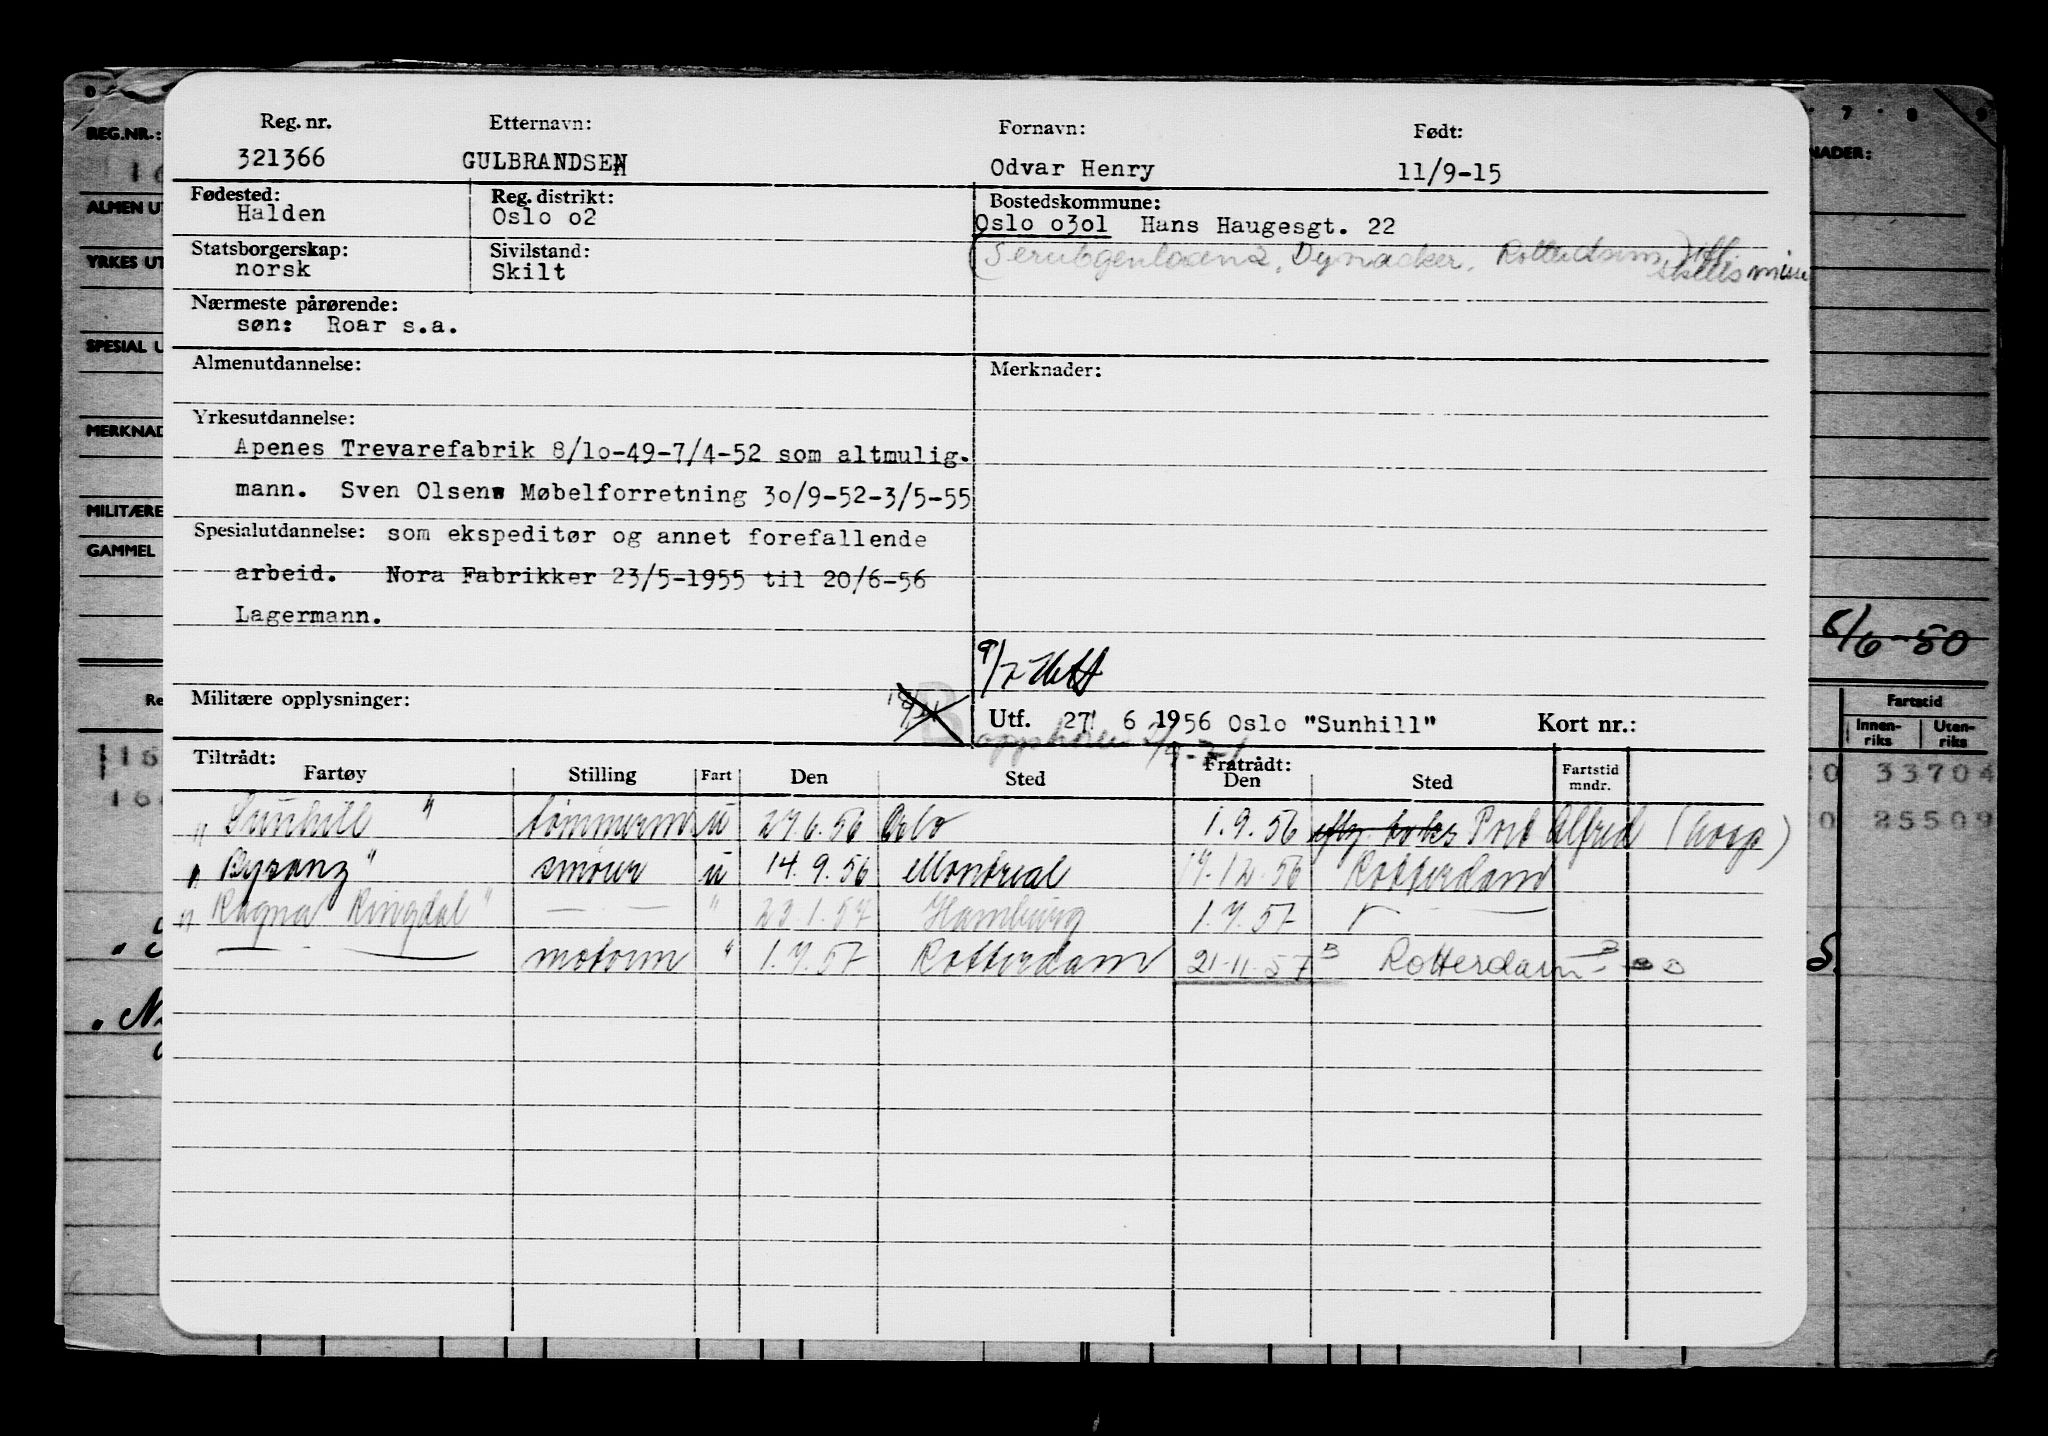 Reg. nr. Etternavn: Fornavn: Født:
321366 GULBRANDSEN Odvar Henry 11/9-15
Fødested: Reg. distrikt: Bostedskommune:
Halden Oslo o2 Oslo o3ol Hans Haugesgt. 22
Statsborgerskap: Sivilstand:
norsk Skilt
Nærmeste pårørende:
søn: Roar s.a.
Almenutdannelse: Merknader:
Yrkesutdannelse:
Apenes Trevarefabrik 8/lo-49-7/4-52 som altmulig-
mann. Sven Olsens Møbelforretning 3o/9-52-3/5-55
Spesialutdannelse: som ekspeditør og annet forefallende
arbeid. Nora Fabrikker 23/5-1955 til 20/6-56
Lagermann.
Militære opplysninger: Utf. 27/ 6 1956 Oslo "Sunhill" Kort nr.:
Tiltrådt: Fratrådt:
Fartøy Stilling Fart Den Sted Den Sted Fartstid mndr.
"Sunhill" tømmerm. u 27.6.56 Oslo 1.9.56 Port Alfred
"Byranz" smører u 14.9.56 Montreal 17.12.56 Rotterdam
"Ragna Ringdal" — — " 23.1.57 Hamburg 1.7.57
— — motorm " 1.7.57 Rotterdam 21-11-57 Rotterdam
REG.NR.:
ALMEN UT
YRKES UT
SPESIAL U
MERKNAD
MILITÆRE
GAMMEL
7 8 9
NADER:
6/6-50
Fartstid
Innen-riks Uten-riks
33704
25509